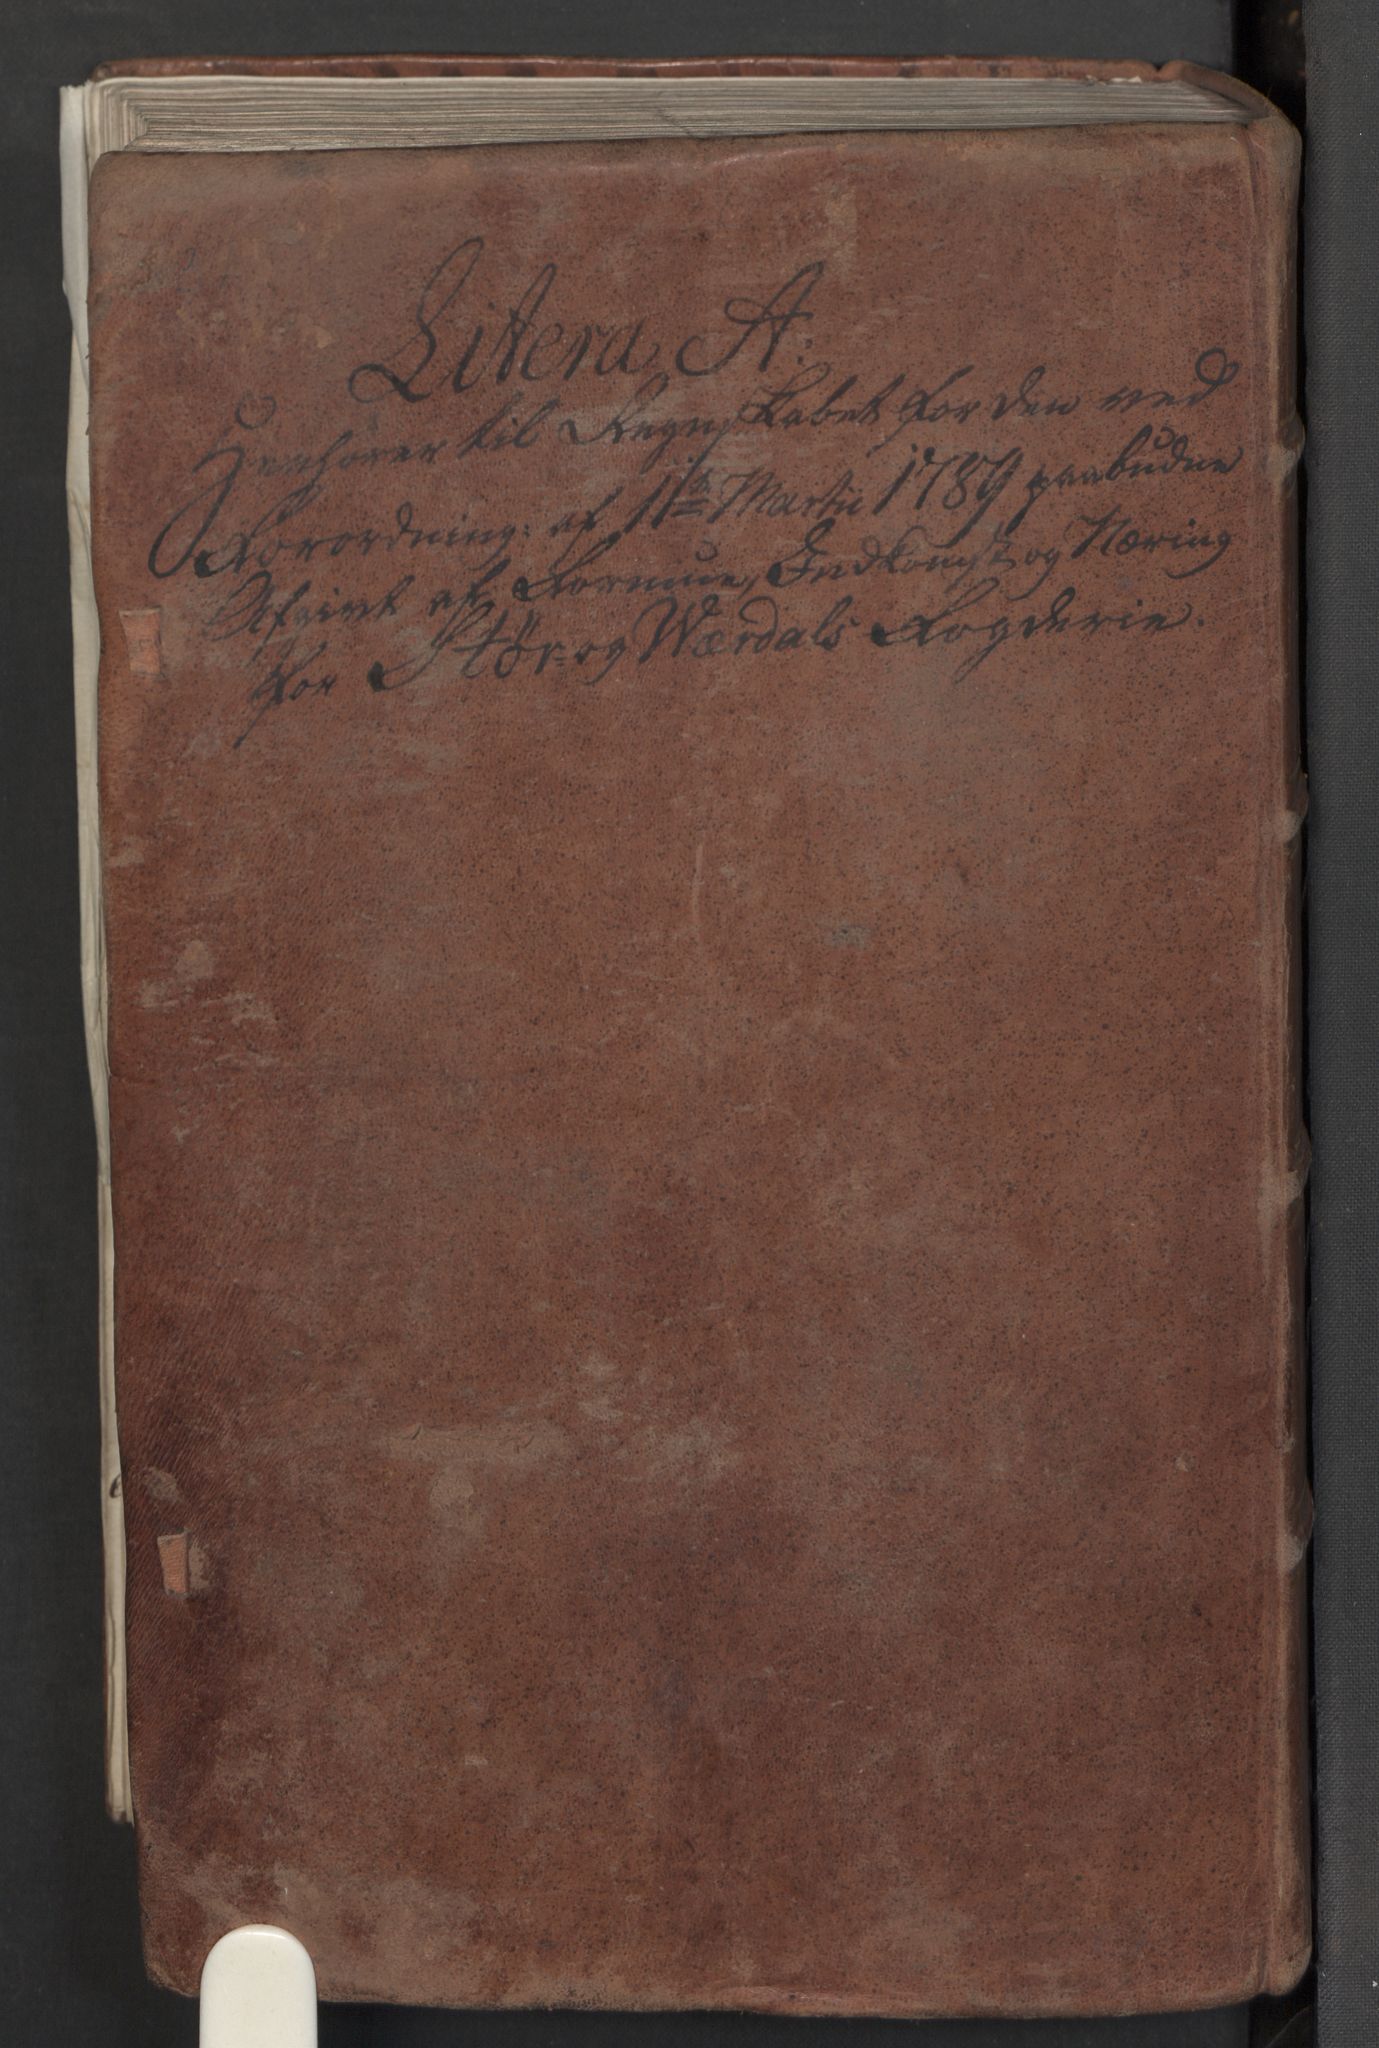 Litera A:
Henhører til Regnskabet for den ved
Forordning: af 11te Martii 1789 paabudne
Afgivt af Formue, Indkomst og Næring
for Stør- og Værdals Fogderie.